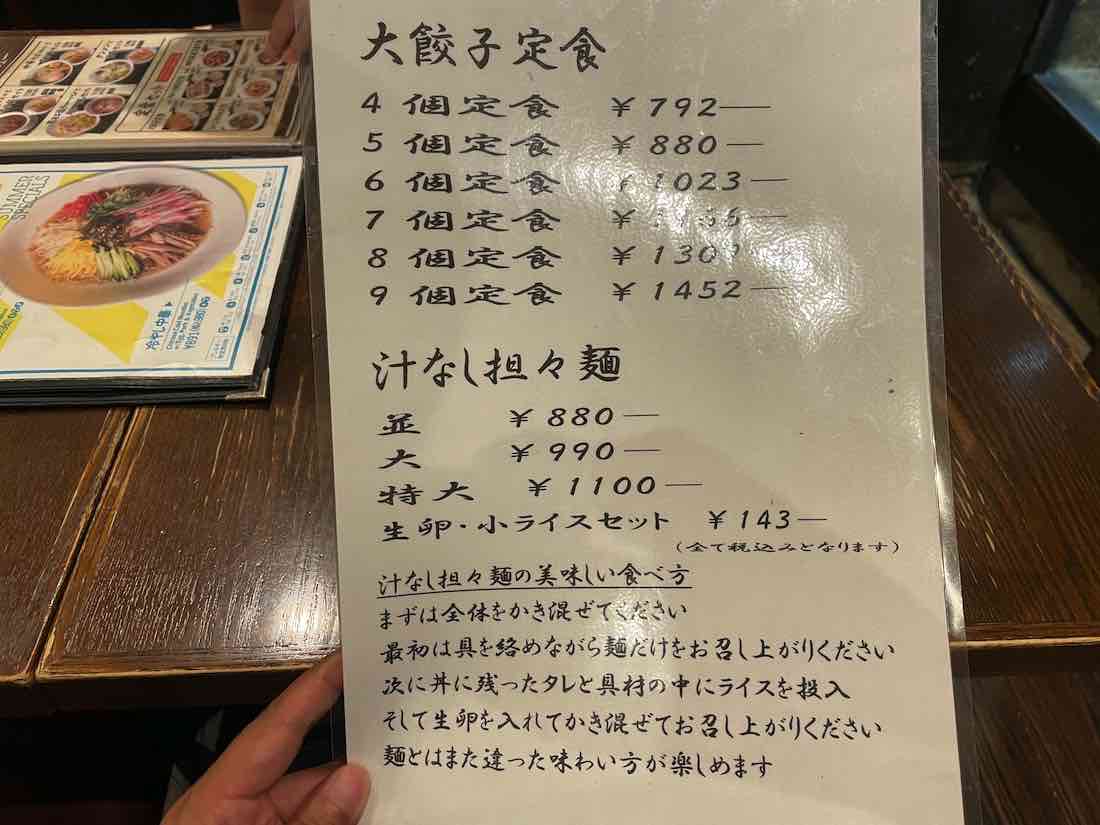 大餃子定食
4個定食 ¥792—
5個定食 ¥880—
6個定食 ¥1023—
7個定食 ¥
8個定食 ¥
9個定食 ¥1452—
汁なし担々麺
並 ¥880—
大 ¥990—
特大 ¥1100—
生卵・小ライスセット ¥143—
(全て税込みとなります)
汁なし担々麺の美味しい食べ方
まずは全体をかき混ぜてください
最初は具を絡めながら麺だけをお召し上がりください
次に丼に残ったタレと具材の中にライスを投入
そして生卵を入れてかき混ぜてお召し上がりください
麺とはまた違った味わい方が楽しめます
SUMMER
SPECIALS
冷やし中華